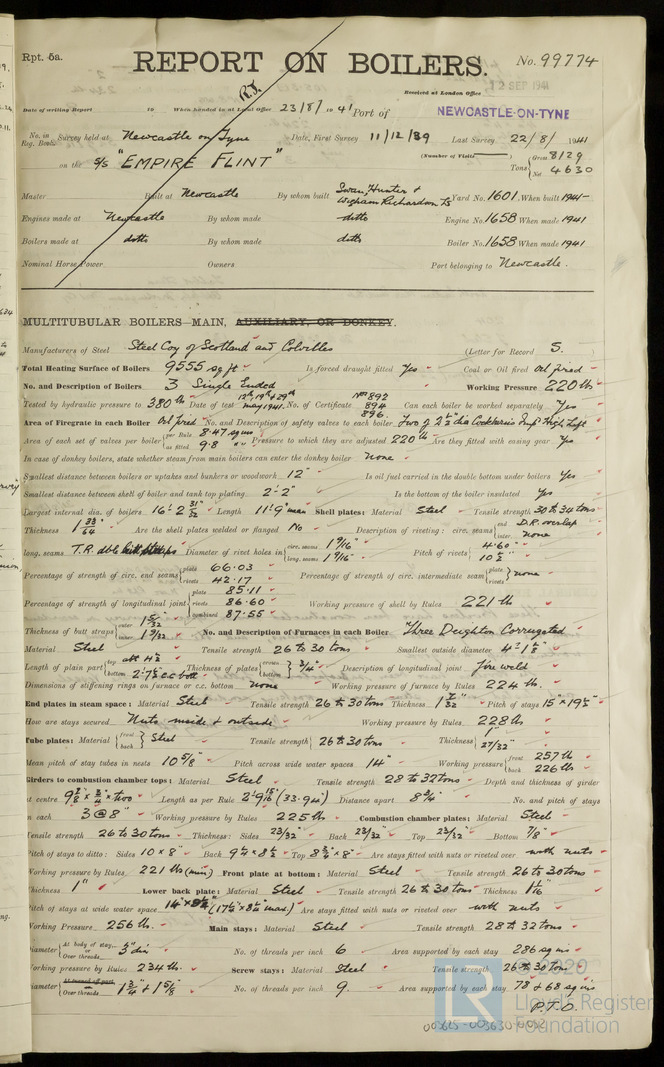 Rpt. 5a.
REPORT ON BOILERS.
No. 99774
Received at London Office
12 SEP 1941
Date of writing Report 19 When handed in at Local Office 23/8/1941 Port of NEWCASTLE-ON-TYNE
No. in Reg. Book. Survey held at Newcastle on Tyne Date, First Survey 11/12/39 Last Survey 22/8/1941
on the S/S "EMPIRE FLINT" (Number of Visits ) Tons {Gross 8129 Net 4630
Master Built at Newcastle By whom built Swan, Hunter & Wigham Richardson Ld Yard No. 1601 When built 1941
Engines made at Newcastle By whom made ditto Engine No. 1658 When made 1941
Boilers made at ditto By whom made ditto Boiler No. 1658 When made 1941
Nominal Horse Power Owners Port belonging to Newcastle.
MULTITUBULAR BOILERS—MAIN, AUXILIARY, OR DONKEY.
Manufacturers of Steel Steel Coy of Scotland and Colvilles (Letter for Record S. )
Total Heating Surface of Boilers 9555 sq ft Is forced draught fitted Yes Coal or Oil fired Oil fired
No. and Description of Boilers 3 Single Ended Working Pressure 220 lb
Tested by hydraulic pressure to 380 lb Date of test 12th, 19th & 29th May 1941. No. of Certificate Nos 892 894 896. Can each boiler be worked separately Yes
Area of Firegrate in each Boiler Oil fired No. and Description of safety valves to each boiler Two of 2½" dia Cockburn's Impd High Lift
Area of each set of valves per boiler {per Rule 8.47 sq ins as fitted 9.8 " " Pressure to which they are adjusted 220 lb Are they fitted with easing gear Yes
In case of donkey boilers, state whether steam from main boilers can enter the donkey boiler None
Smallest distance between boilers or uptakes and bunkers or woodwork 12" Is oil fuel carried in the double bottom under boilers Yes
Smallest distance between shell of boiler and tank top plating 2'-2" Is the bottom of the boiler insulated Yes
Largest internal dia. of boilers 16'-2 31/32 Length 11'-9" mean Shell plates: Material Steel Tensile strength 30 to 34 tons
Thickness 1 33/64 Are the shell plates welded or flanged No Description of riveting: circ. seams {end D.R. overlap inter. none
long. seams T.R. dble butt straps Diameter of rivet holes in {circ. seams 1 9/16" long. seams 1 9/16" Pitch of rivets {4.60" 10½"
Percentage of strength of circ. end seams {plate 66.03 rivets 42.17 Percentage of strength of circ. intermediate seam {plate rivets none
Percentage of strength of longitudinal joint {plate 85.11 rivets 86.60 combined 87.55 Working pressure of shell by Rules 221 lb
Thickness of butt straps {outer 1 5/32 inner 1 9/32 No. and Description of Furnaces in each Boiler Three Deighton Corrugated
Material Steel Tensile strength 26 to 30 tons Smallest outside diameter 4'-1⅞"
Length of plain part {top abt 4½ bottom 2'-7½" c.c. bott Thickness of plates {crown bottom } ¾" Description of longitudinal joint fire weld
Dimensions of stiffening rings on furnace or c.c. bottom none Working pressure of furnace by Rules 224 lb.
End plates in steam space: Material Steel Tensile strength 26 to 30 tons Thickness 1 7/32 Pitch of stays 15" x 19½"
How are stays secured Nuts inside & outside Working pressure by Rules 228 lb
Tube plates: Material {front back} Steel Tensile strength {26 to 30 tons Thickness {1" 27/32"
Mean pitch of stay tubes in nests 10 5/8" Pitch across wide water spaces 14" Working pressure {front 257 lb back 226 lb
Girders to combustion chamber tops: Material Steel Tensile strength 28 to 32 tons Depth and thickness of girder
at centre x ¾ x two Length as per Rule (33.94") Distance apart 8¾" No. and pitch of stays
in each 3 @ 8" Working pressure by Rules 225 lb Combustion chamber plates: Material Steel
Tensile strength 26 to 30 tons Thickness: Sides 23/32" Back 23/32" Top 23/32" Bottom 7/8"
Pitch of stays to ditto: Sides 10 x 8" Back 9¼ x 8½ Top 8¾ x 8" Are stays fitted with nuts or riveted over with nuts
Working pressure by Rules 221 lbs (min) Front plate at bottom: Material Steel Tensile strength 26 to 30 tons
Thickness 1" Lower back plate: Material Steel Tensile strength 26 to 30 tons Thickness 1 1/16"
Pitch of stays at wide water space 14" x 8½" (17½ x 8½ max) Are stays fitted with nuts or riveted over with nuts
Working Pressure 256 lb. Main stays: Material Steel Tensile strength 28 to 32 tons
Diameter {At body of stay, or Over threads 3" dia No. of threads per inch 6 Area supported by each stay 286 sq ins
Working pressure by Rules 234 lb. Screw stays: Material Steel Tensile strength 26 to 30 tons
Diameter {At turned off part, or Over threads 1¾ & 1⅝ No. of threads per inch 9. Area supported by each stay 78 & 68 sq ins
P.T.O.
© 2020
LR
Lloyd's Register
Foundation
003625-003630-0032